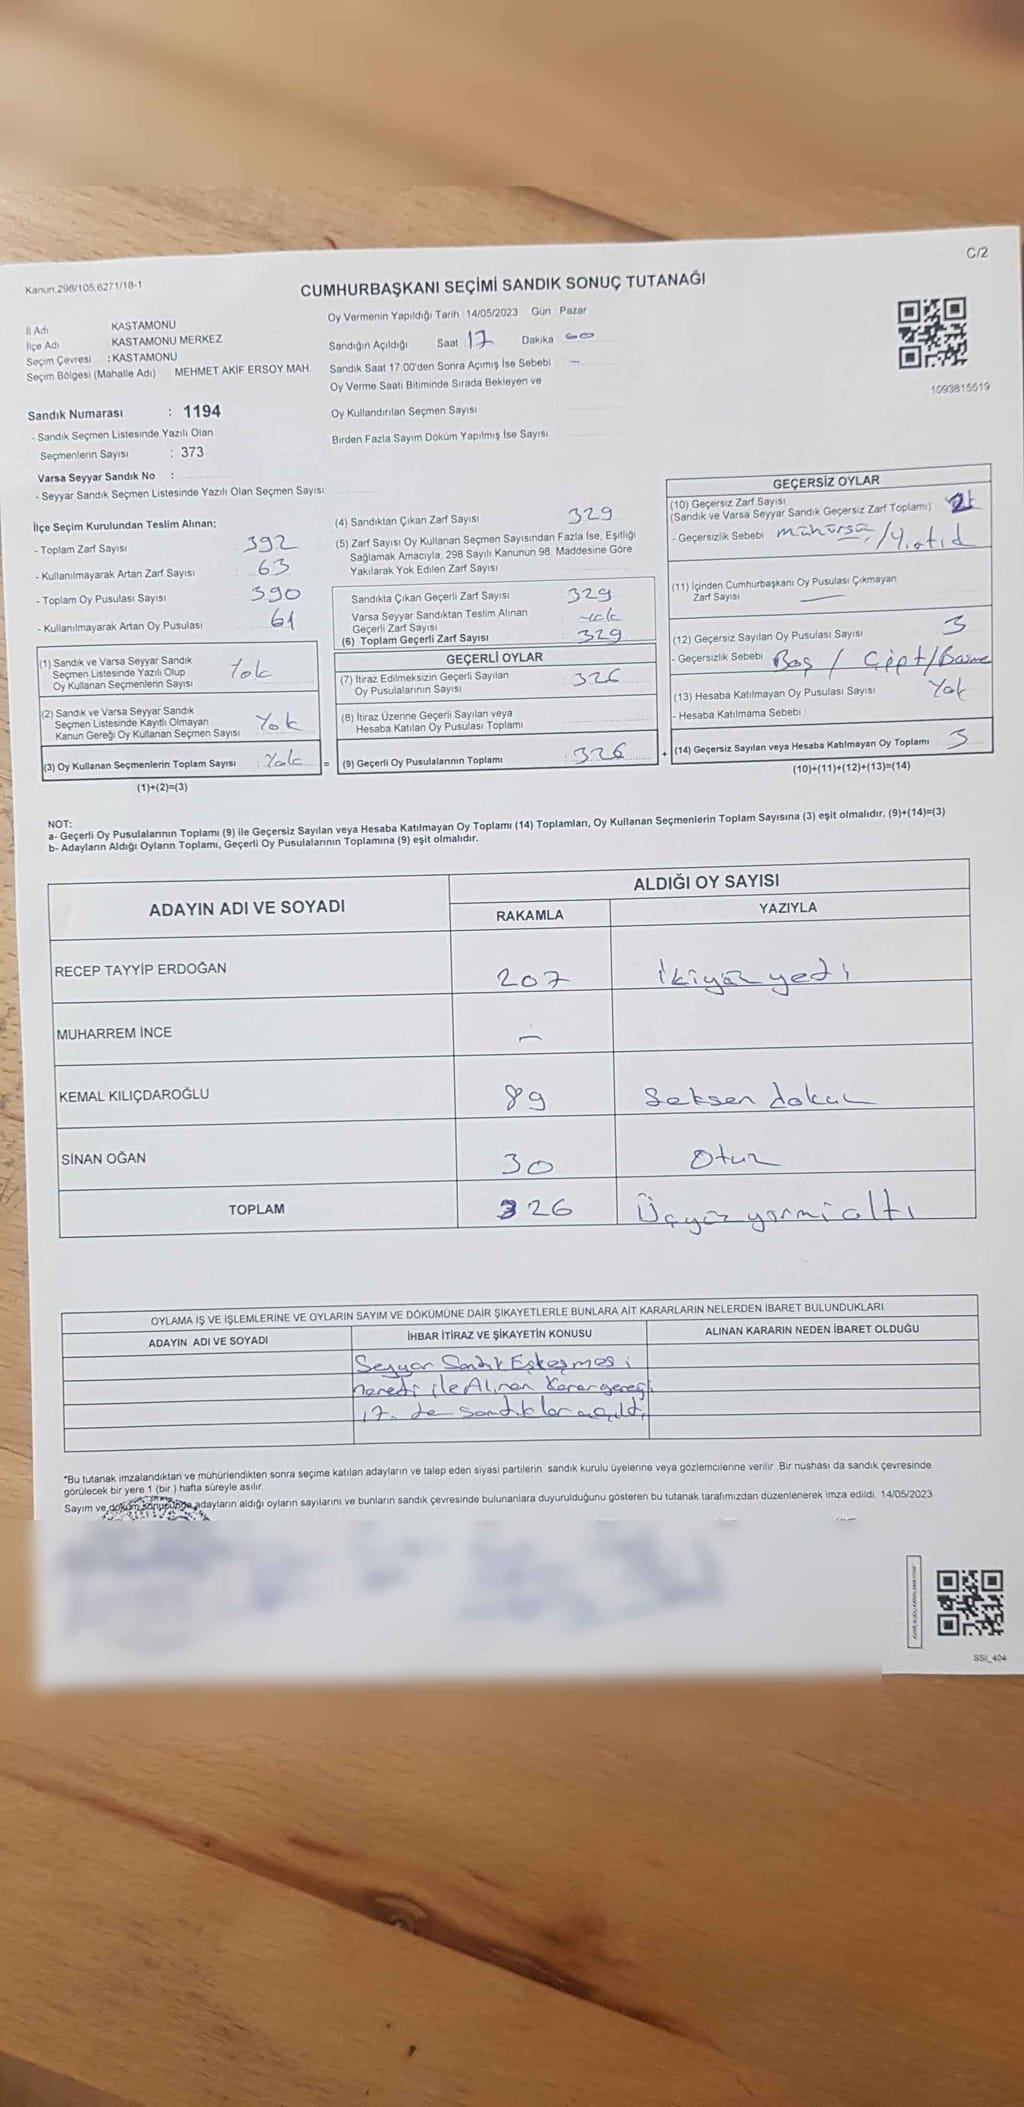 C/2
Kanun.298/105,6271/18-1
CUMHURBAŞKANI SEÇİMİ SANDIK SONUÇ TUTANAĞI
İl Adı : KASTAMONU
İlçe Adı : KASTAMONU MERKEZ
Seçim Çevresi : KASTAMONU
Seçim Bölgesi (Mahalle Adı) MEHMET AKİF ERSOY MAH.
Oy Vermenin Yapıldığı Tarih : 14/05/2023 Gün : Pazar
Sandığın Açıldığı Saat : 17 Dakika : 00
Sandık Saat 17:00'den Sonra Açımış İse Sebebi : -
Oy Verme Saati Bitiminde Sırada Bekleyen ve
Oy Kullandırılan Seçmen Sayısı
Birden Fazla Sayım Döküm Yapılmış İse Sayısı
1093815519
Sandık Numarası : 1194
- Sandık Seçmen Listesinde Yazılı Olan
Seçmenlerin Sayısı : 373
Varsa Seyyar Sandık No :
- Seyyar Sandık Seçmen Listesinde Yazılı Olan Seçmen Sayısı:
İlçe Seçim Kurulundan Teslim Alınan;
- Toplam Zarf Sayısı : 392
- Kullanılmayarak Artan Zarf Sayısı : 63
- Toplam Oy Pusulası Sayısı : 390
- Kullanılmayarak Artan Oy Pusulası : 61
(1) Sandık ve Varsa Seyyar Sandık
Seçmen Listesinde Yazılı Olup
Oy Kullanan Seçmenlerin Sayısı Yok
(2) Sandık ve Varsa Seyyar Sandık
Seçmen Listesinde Kayıtlı Olmayan
Kanun Gereği Oy Kullanan Seçmen Sayısı Yok
(3) Oy Kullanan Seçmenlerin Toplam Sayısı : Yok =
(1)+(2)=(3)
(4) Sandıktan Çıkan Zarf Sayısı 329
(5) Zarf Sayısı Oy Kullanan Seçmen Sayısından Fazla İse, Eşitliği
Sağlamak Amacıyla, 298 Sayılı Kanunun 98. Maddesine Göre
Yakılarak Yok Edilen Zarf Sayısı
Sandıkta Çıkan Geçerli Zarf Sayısı : 329
Varsa Seyyar Sandıktan Teslim Alınan
Geçerli Zarf Sayısı : yok
(6) Toplam Geçerli Zarf Sayısı : 329
GEÇERLİ OYLAR
(7) İtiraz Edilmeksizin Geçerli Sayılan
Oy Pusulalarının Sayısı : 326
(8) İtiraz Üzerine Geçerli Sayılan veya
Hesaba Katılan Oy Pusulası Toplamı
(9) Geçerli Oy Pusulalarının Toplamı : 326 +
GEÇERSİZ OYLAR
(10) Geçersiz Zarf Sayısı
(Sandık ve Varsa Seyyar Sandık Geçersiz Zarf Toplamı)
- Geçersizlik Sebebi mühürsüz
(11) İçinden Cumhurbaşkanı Oy Pusulası Çıkmayan
Zarf Sayısı
(12) Geçersiz Sayılan Oy Pusulası Sayısı 3
- Geçersizlik Sebebi Boş / Çift /
(13) Hesaba Katılmayan Oy Pusulası Sayısı Yok
- Hesaba Katılmama Sebebi :
(14) Geçersiz Sayılan veya Hesaba Katılmayan Oy Toplamı : 3
(10)+(11)+(12)+(13)=(14)
NOT:
a- Geçerli Oy Pusulalarının Toplamı (9) ile Geçersiz Sayılan veya Hesaba Katılmayan Oy Toplamı (14) Toplamları, Oy Kullanan Seçmenlerin Toplam Sayısına (3) eşit olmalıdır. (9)+(14)=(3)
b- Adayların Aldığı Oyların Toplamı, Geçerli Oy Pusulalarının Toplamına (9) eşit olmalıdır.
ADAYIN ADI VE SOYADI
ALDIĞI OY SAYISI
RAKAMLA YAZIYLA
RECEP TAYYİP ERDOĞAN 207 İkiyüz yedi
MUHARREM İNCE -
KEMAL KILIÇDAROĞLU 89 Seksen dokuz
SİNAN OĞAN 30 Otuz
TOPLAM 326 Üçyüz yirmi altı
OYLAMA İŞ VE İŞLEMLERİNE VE OYLARIN SAYIM VE DÖKÜMÜNE DAİR ŞİKAYETLERLE BUNLARA AİT KARARLARIN NELERDEN İBARET BULUNDUKLARI
ADAYIN ADI VE SOYADI İHBAR İTİRAZ VE ŞİKAYETİN KONUSU ALINAN KARARIN NEDEN İBARET OLDUĞU
Seyyar Sandık
ile Alınan Karar gereği
17. de sandıklar açıldı
*Bu tutanak imzalandıktan ve mühürlendikten sonra seçime katılan adayların ve talep eden siyasi partilerin sandık kurulu üyelerine veya gözlemcilerine verilir. Bir nüshası da sandık çevresinde
görülecek bir yere 1 (bir ) hafta süreyle asılır.
Sayım ve döküm sonucunda adayların aldığı oyların sayılarını ve bunların sandık çevresinde bulunanlara duyurulduğunu gösteren bu tutanak tarafımızdan düzenlenerek imza edildi. 14/05/2023
SSİ_404